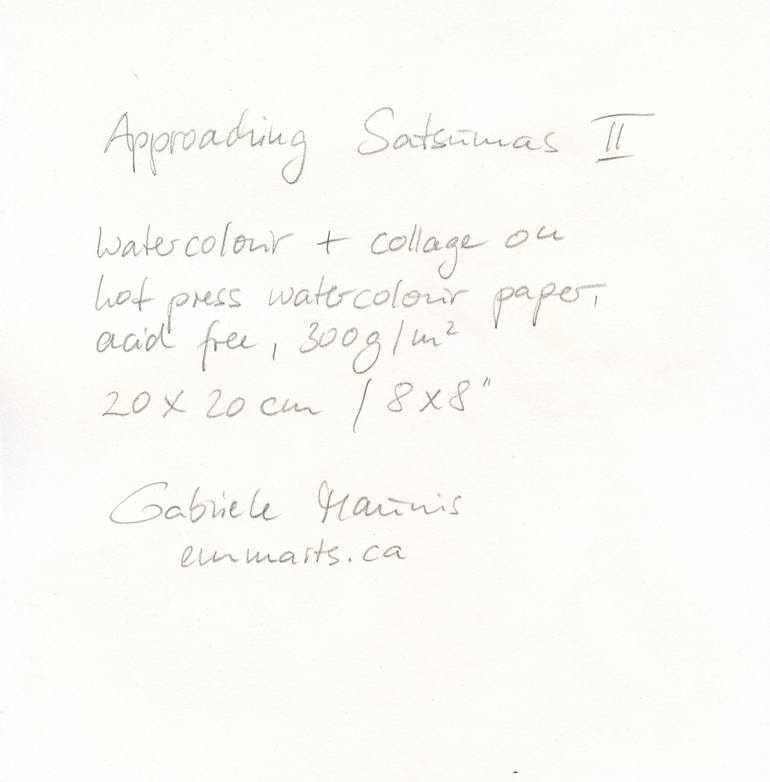 Approaching Satsumas II
watercolour + collage on
hot press watercolour paper,
acid free, 300g/m²
20 x 20 cm / 8 x 8"
Gabriele
emmarts.ca